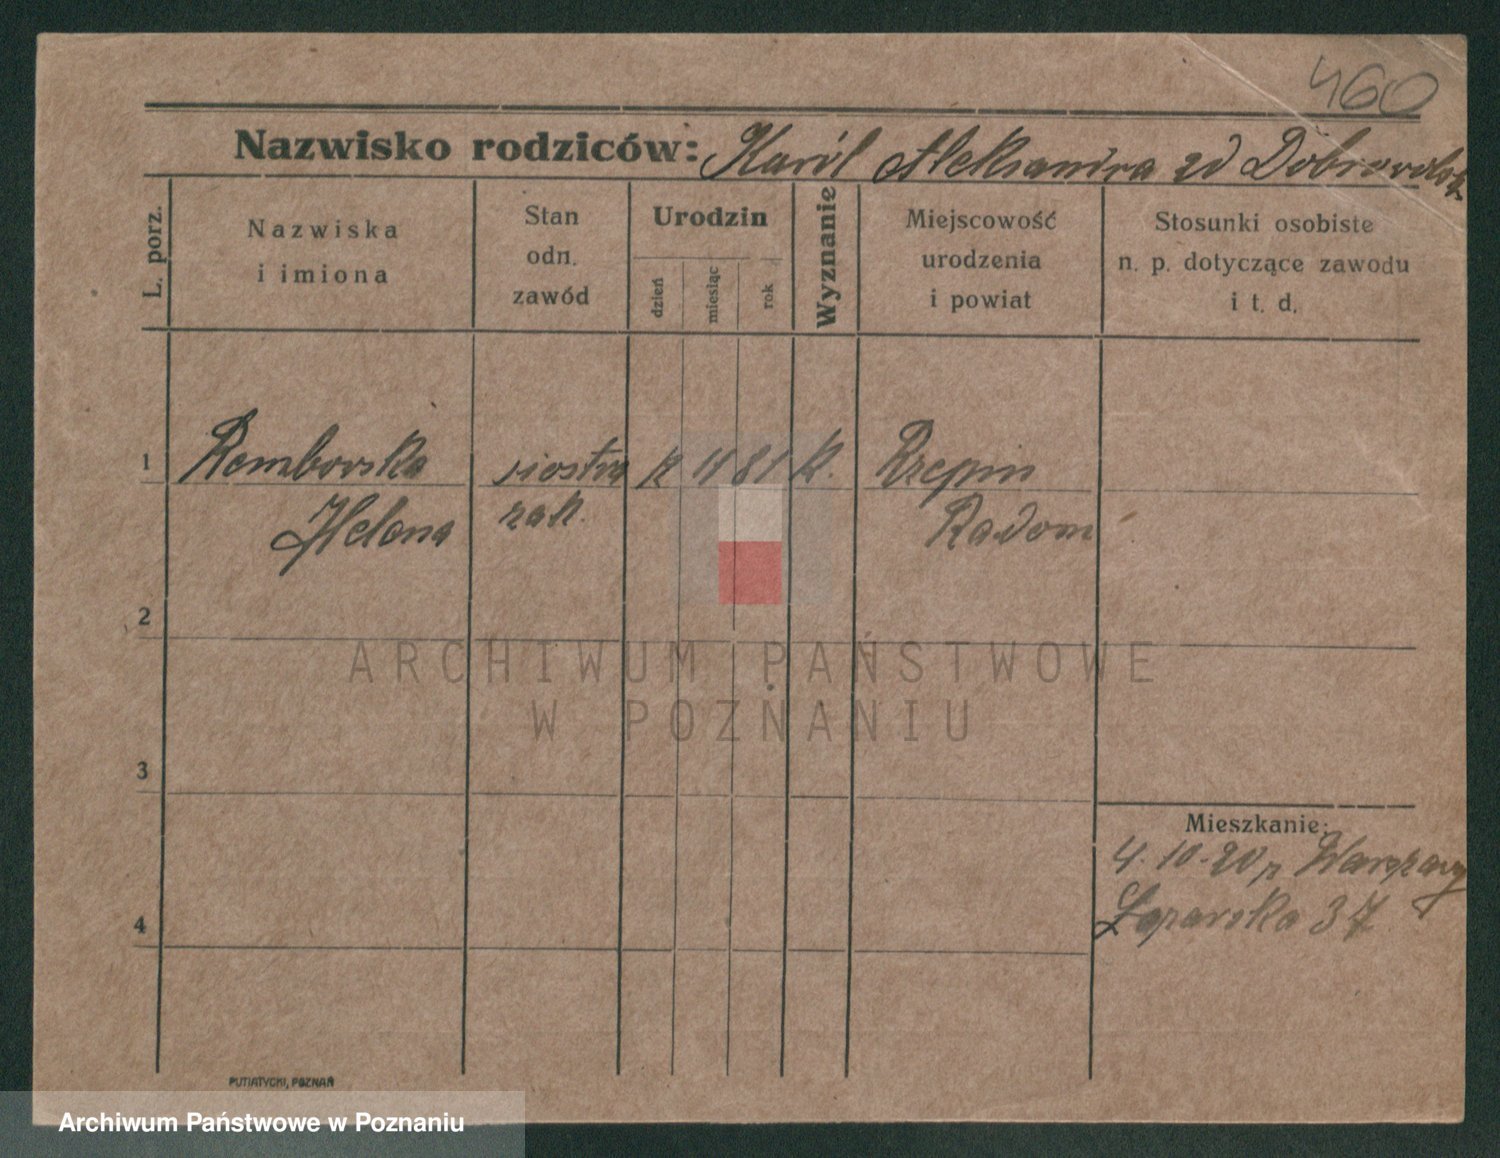 460
Nazwisko rodziców: Karól Aleksandra zd Dobrowolsk
L. porz.
Nazwiska
i imiona
Stan
odn.
zawód
Urodzin
dzień
miesiąc
rok
Wyznanie
Miejscowość
urodzenia
i powiat
Stosunki osobiste
n. p. dotyczące zawodu
i t. d.
1 Rembowska siostra 11 81 k. Rzepin
Helena zak. Radom
2
ARCHIWUM PAŃSTWOWE
W POZNANIU
3
Mieszkanie:
4.10.20 z Warszawy
4 Łazarska 37
PUTIATYCKI, POZNAŃ
Archiwum Państwowe w Poznaniu